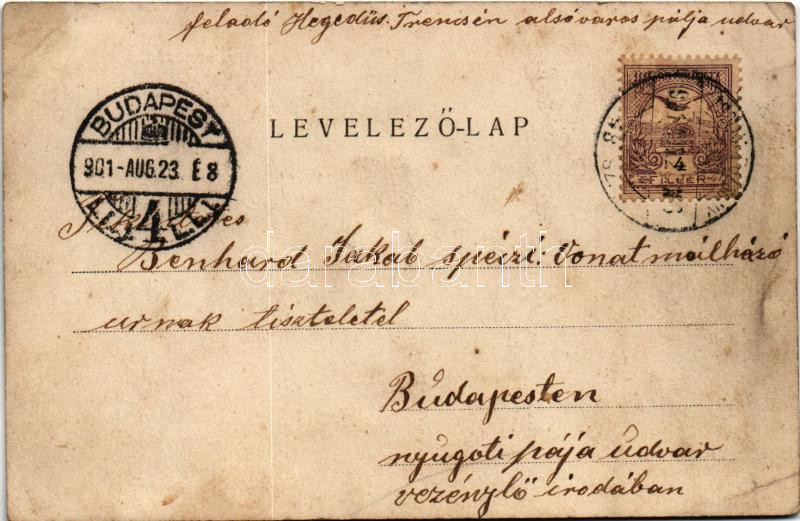 feladó Hegedüs. Trencsén alsóváros pálja udvar
BUDAPEST
901-AUG.23. É8
4
LEVELEZŐ-LAP
4
FILLÉR
Tekintetes
Benhard Jakab spéczi: Vonatmálházó
urnak tisztelettel
Budapesten
nyugoti pája udvar
vezénylő irodában
darabanth